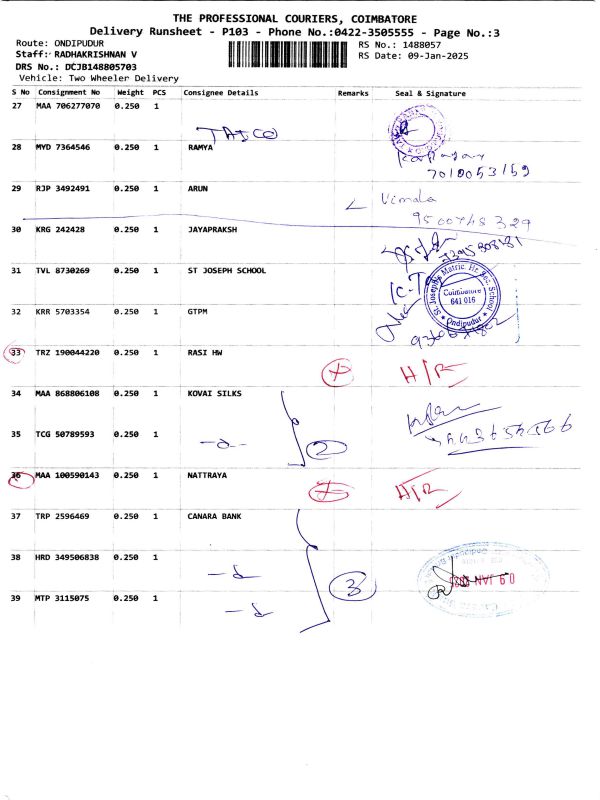 THE PROFESSIONAL COURIERS, COIMBATORE
Delivery Runsheet - P103 - Phone No.:0422-3505555 - Page No.:3
Route: ONDIPUDUR
RS No.: 1488057
Staff: RADHAKRISHNAN V
RS Date: 09-Jan-2025
DRS No.: DCJB148805703
Vehicle: Two Wheeler Delivery
S No Consignment No Weight PCS Consignee Details Remarks Seal & Signature
27 MAA 706277070 0.250 1
28 MYD 7364546 0.250 1 RAMYA
7010053159
29 RJP 3492491 0.250 1 ARUN
Vimala
9500748329
30 KRG 242428 0.250 1 JAYAPRAKSH
31 TVL 8730269 0.250 1 ST JOSEPH SCHOOL
St. Joseph's Matric. Hr. Sec. School
Coimbatore
641 016
Ondipudur
32 KRR 5703354 0.250 1 GTPM
33 TRZ 190044220 0.250 1 RASI HW
H/R
34 MAA 868806108 0.250 1 KOVAI SILKS
35 TCG 50789593 0.250 1
2
36 MAA 100590143 0.250 1 NATTRAYA
H/R
37 TRP 2596469 0.250 1 CANARA BANK
38 HRD 349506838 0.250 1
3
09 JAN
39 MTP 3115075 0.250 1